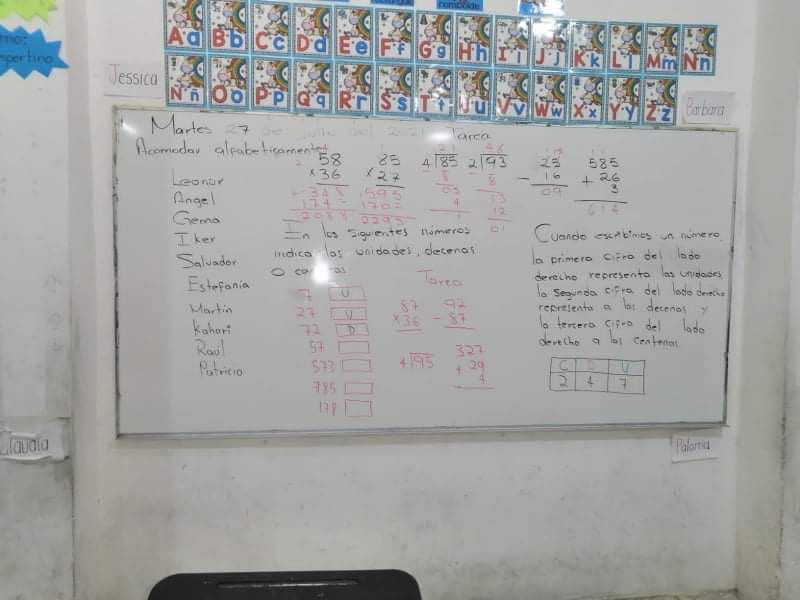 Aa Bb Cc Dd Ee Ff Gg Hh Ii Jj Kk Ll Mm Nn
Ññ Oo Pp Qq Rr Ss Tt Uu Vv Ww Xx Yy Zz
Jessica
Barbara
Claudia
Paloma
Martes 27 de Julio del 2021 Tarea
Acomodar alfabeticamente
Leonor
Angel
Gema
Iker
Salvador
Estefania
Martin
Raul
Patricio
58
×36
348
174
2088
85
×27
595
170
2295
4 85
2 93
25
- 16
09
585
+ 26
3
614
In los siguentes números
indica las unidades, decenas
o
7 U
27 U
72 D
57
573
785
178
Tarea
87
×36
92
- 87
4 95
327
+ 29
4
Cuando escribimos un número
la primera cifra del lado
derecho representa las unidades
la segunda cifra del lado derecho
representa a las decenas y
la tercera cifra del lado
derecho a las centenas
C D U
2 4 7